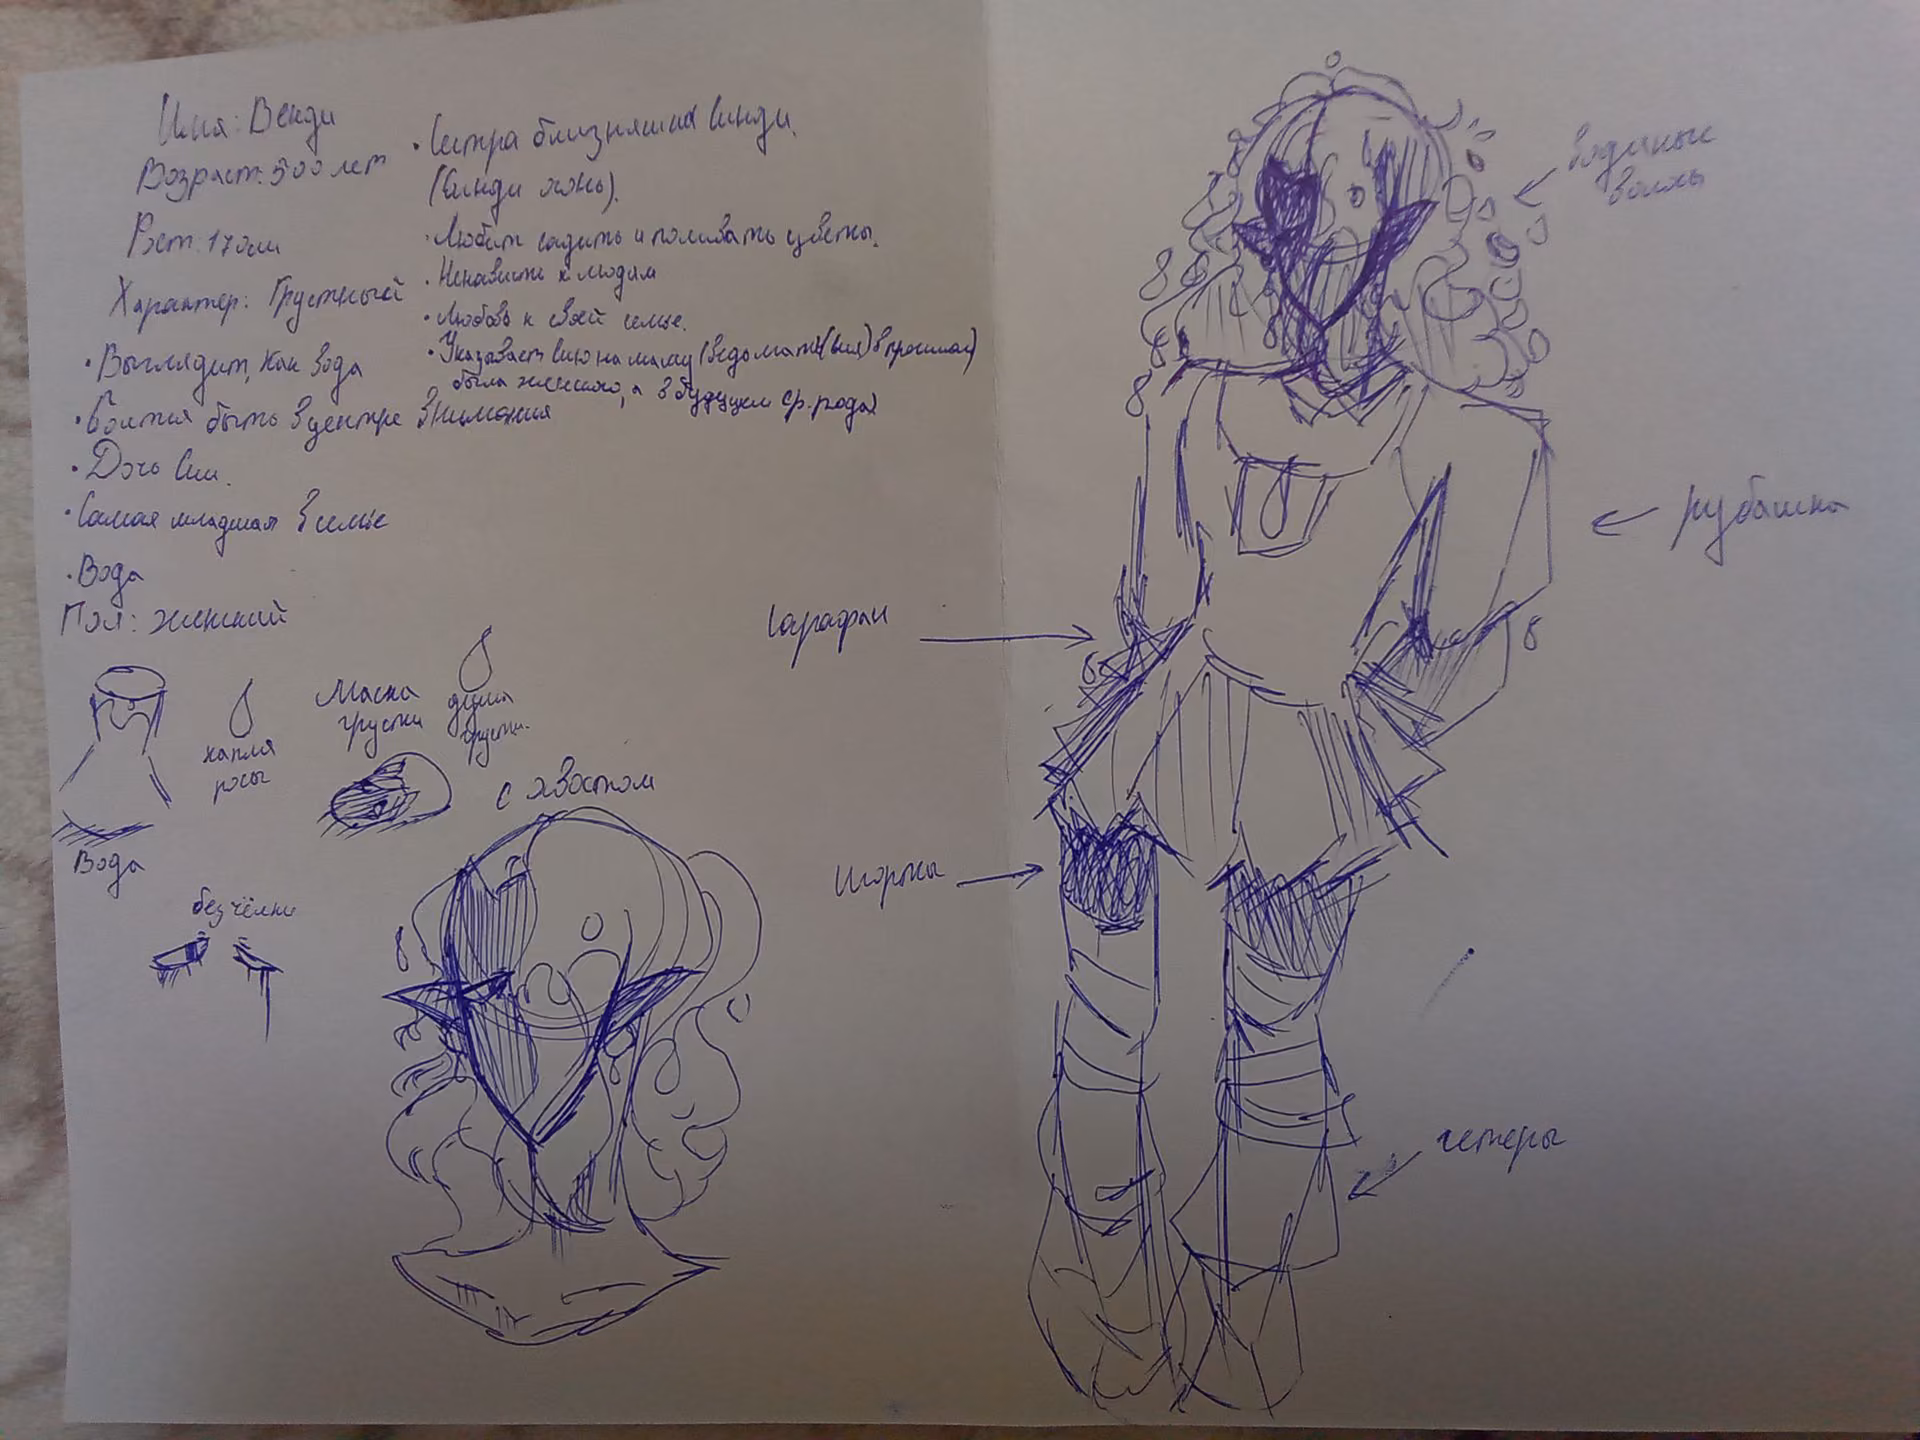 Имя: Венди
Возраст: 500 лет
Рост: 170см
Характер: Грустный
• Выглядит, как вода
• Боится быть в центре внимания
• Дочь Сии.
• Самая младшая в семье
• Вода
Пол: женский
• Сестра близняшка Синди.
(Синди огонь).
• Любит садить и поливать цветы.
• Ненависть к людям
• Любовь к своей семье.
• Указывает Сию на маму (ведь мать (Сия) в прошлом)
была женского, а в будущем ср. рода)
капля
росы
Маска
грусти
душа
грусти.
Вода
с хвостом
без чёлки
водяные
волосы
рубашка
сарафан
шорты
гетеры